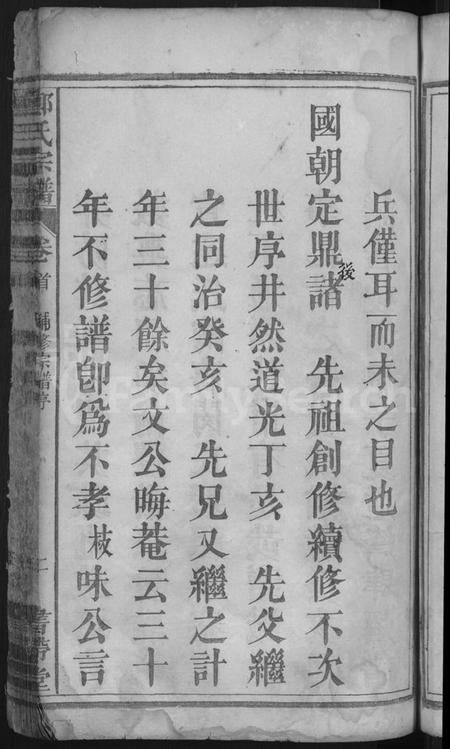 兵僅耳而未之目也
國朝定鼎後諸 先祖創修續修不次
世序井然道光丁亥 先父繼
之同治癸亥 先兄又繼之計
年三十餘矣文公晦菴云三十
年不修譜卽爲不孝枝味公言
鄭氏宗譜 卷首 補修宗譜序
書帶堂